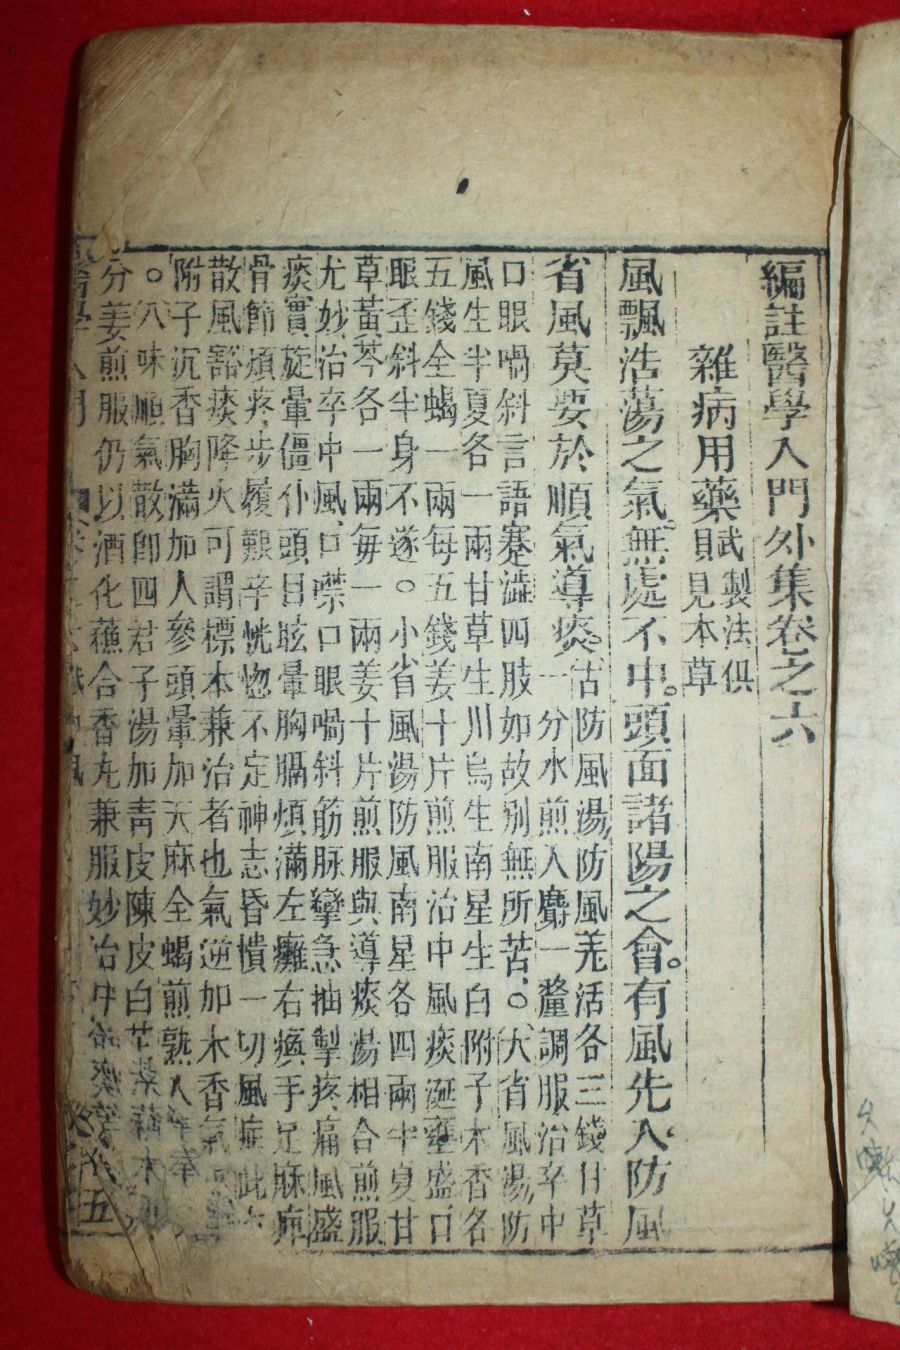 編註醫學入門外集卷之六
雜病用藥賦製法俱見本草
風飄浩蕩之氣無處不中。頭面諸陽之會。有風先入防風
省風莫要於順氣導痰。古防風湯防風羌活各三錢甘草
一分水煎入麝一釐調服治卒中
口眼喎斜言語蹇澁四肢如故别無所苦。○大省風湯防
風生半夏各一兩甘草生川烏生南星生白附子木香各
五錢全蝎一兩每五錢姜十片煎服治中風痰涎壅盛口
眼歪斜半身不遂。○小省風湯防風南星各四兩半夏甘
草黃芩各一兩每一兩姜十片煎服與導痰湯相合煎服
尤妙治卒中風口噤口眼喎斜筋脉攣急抽掣疼痛風盛
痰實旋暈僵仆頭目眩暈胸膈煩滿左癱右瘓手足麻痺
骨節煩疼步履艱辛恍惚不定神志昏憒一切風症此
散風豁痰降火可謂標本兼治者也氣逆加木香氣
附子沉香胸滿加人參頭暈加天麻全蝎煎熟入
○八味順氣散卽四君子湯加靑皮陳皮白芷
分姜煎服仍以酒化蘓合香丸兼服妙治中
五